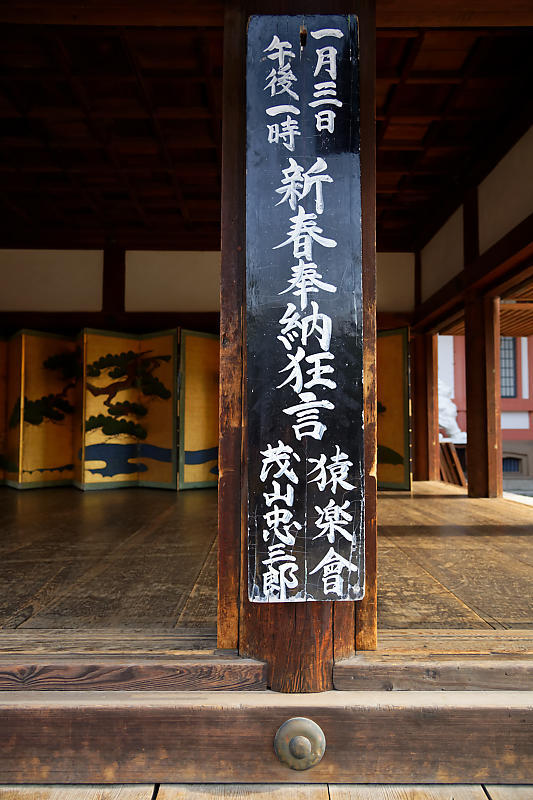 一月三日
午後一時
新春奉納狂言
猿楽會
茂山忠三郎